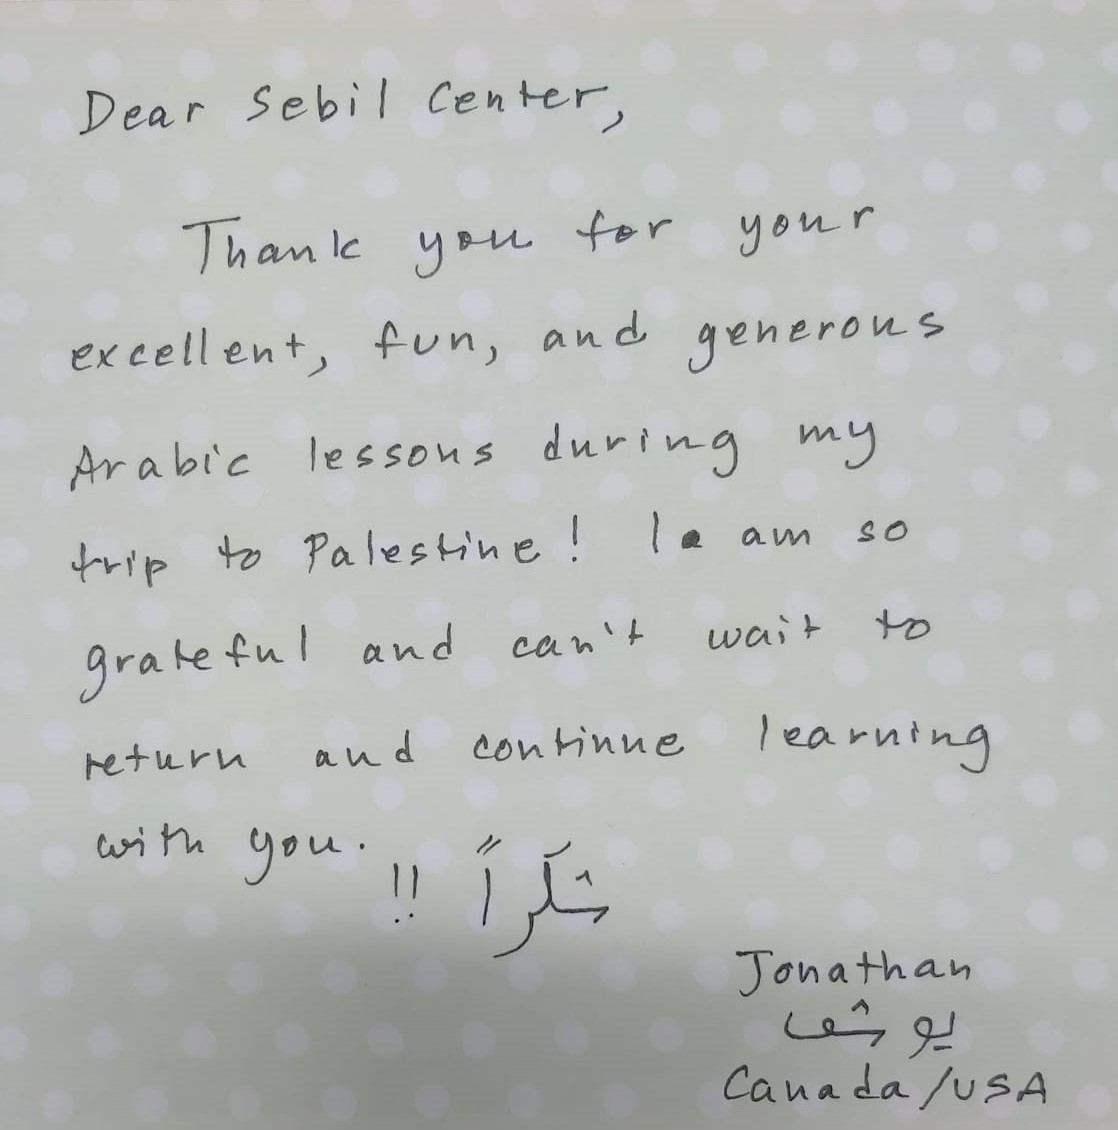 Dear Sebil Center,
Thank you for your
excellent, fun, and generous
Arabic lessons during my
trip to Palestine! I am so
grateful and can't wait to
return and continue learning
with you.
شكراً !!
Jonathan
يوشع
Canada/USA